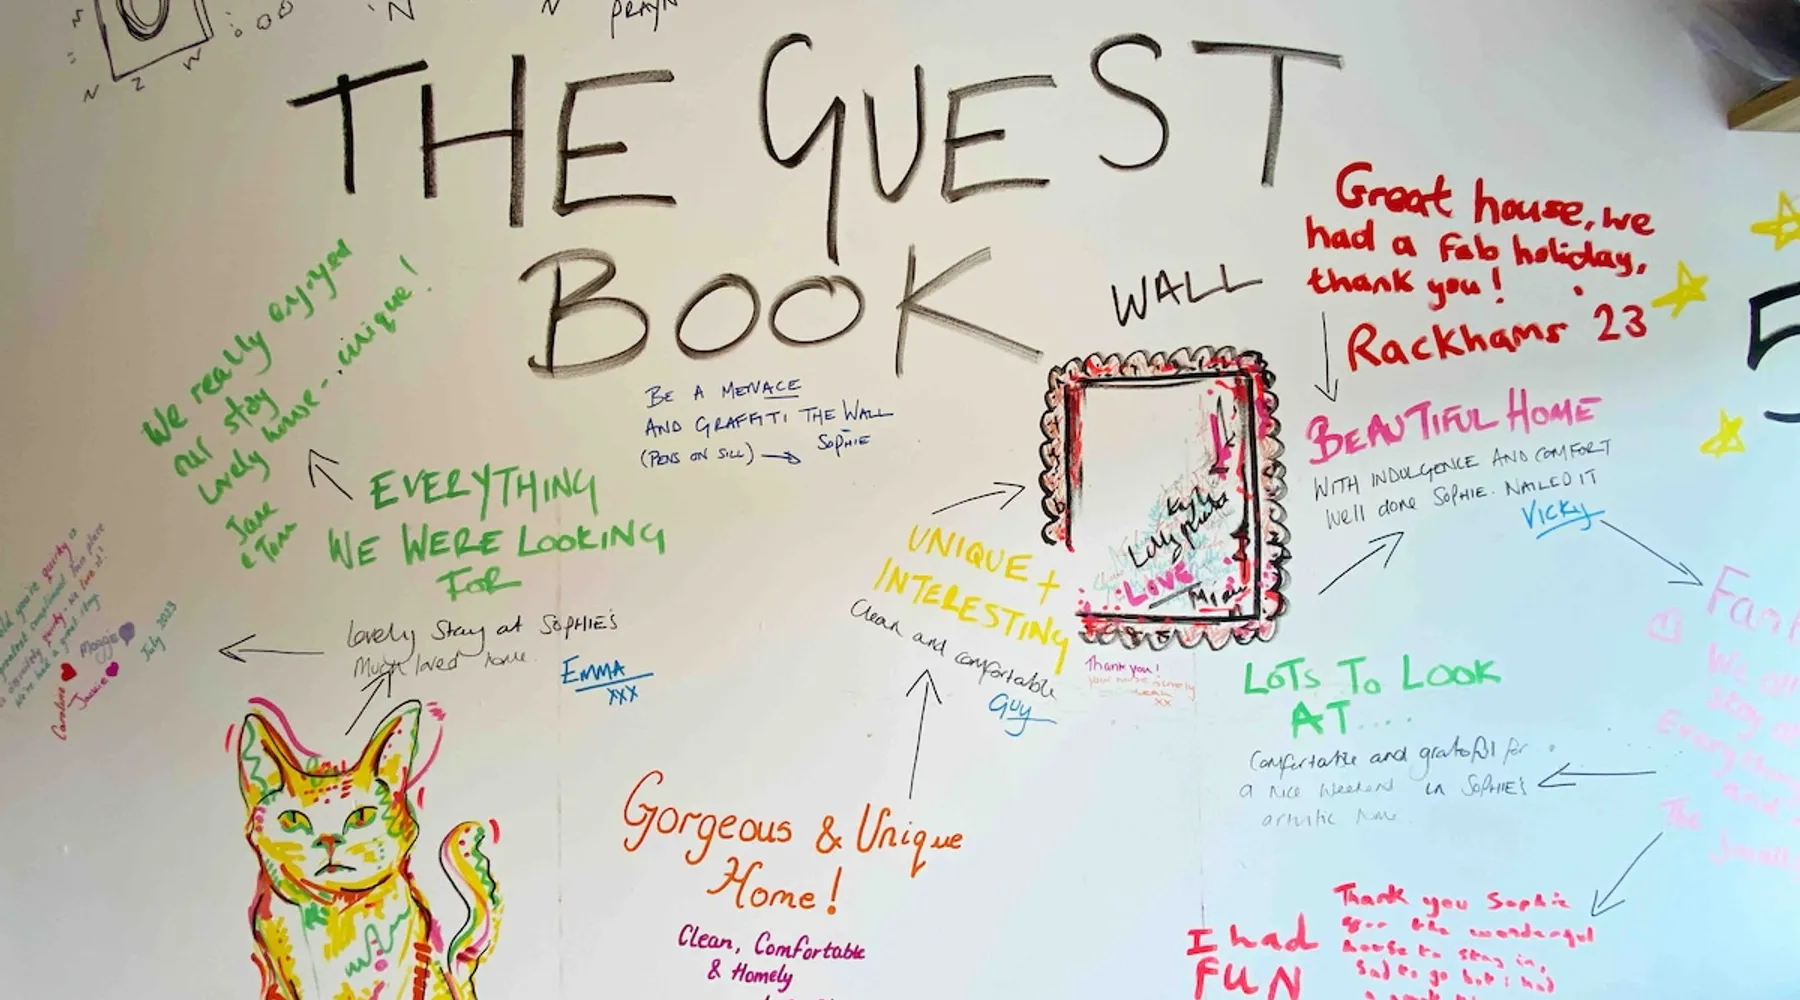 THE GUEST
BOOK
WALL
BE A MENACE
AND GRAFFITI THE WALL
(PENS ON SILL)
SOPHIE
We really enjoyed
our stay
lovely house... unique!
Jane
& Tom
EVERYTHING
WE WERE LOOKING
FOR
Lovely stay at SOPHIE'S
Much loved home.
EMMA
xxx
Maggie
Caroline
Jackie
July 2023
UNIQUE +
INTERESTING
Clean and comfortable
Guy
LOVE
Thank you!
xx
Great house, we
had a fab holiday,
thank you!
Rackhams '23
BEAUTIFUL HOME
WITH INDULGENCE AND COMFORT
Well done SOPHIE. NAILED IT
Vicky
LOTS TO LOOK
AT....
Comfortable and grateful for
a nice weekend in SOPHIE'S
artistic home.
Gorgeous & Unique
Home!
Clean, Comfortable
& Homely
I had
FUN
Thank you Sophie
for the wonderful
house to stay in,
Sad to go but i had
We all
stay
The
5